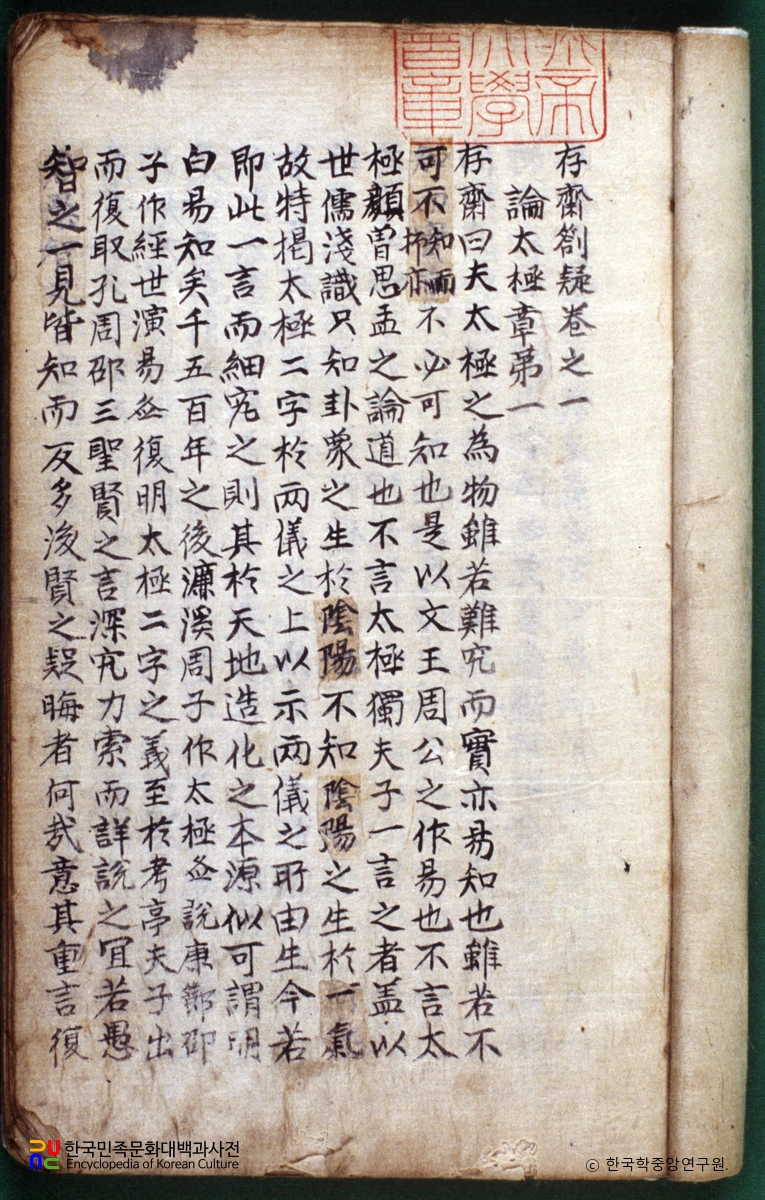 存齋劄疑卷之一
論太極章第一
存齋曰夫太極之為物雖若難究而實亦易知也雖若不
可不知而抑亦不必可知也是以文王周公之作易也不言太
極顔曾思孟之論道也不言太極獨夫子一言之者盖以
世儒淺識只知卦象之生於陰陽不知陰陽之生於一氣
故特揭太極二字於兩儀之上以示兩儀之所由生今若
即此一言而細究之則其於天地造化之本源似可謂明
白易知矣千五百年之後濂溪周子作太極啚說康節邵
子作經世演易啚復明太極二字之義至於考亭夫子出
而復取孔周邵三聖賢之言深究力索而詳說之宜若愚
智之一見皆知而反多後賢之疑晦者何哉意其重言復
한국민족문화대백과사전
Encyclopedia of Korean Culture
© 한국학중앙연구원.